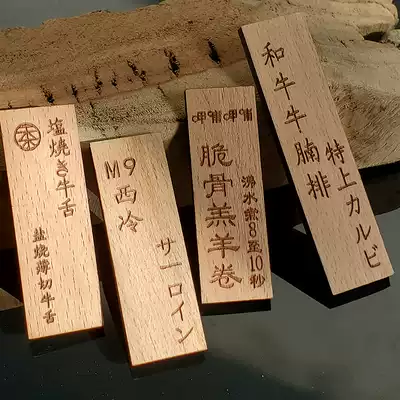 塩焼き牛舌
盐烧薄切牛舌
M9西冷
サーロイン
呷哺呷哺
脆骨羔羊卷
沸水煮8至10秒
和牛牛腩排
特上カルビ